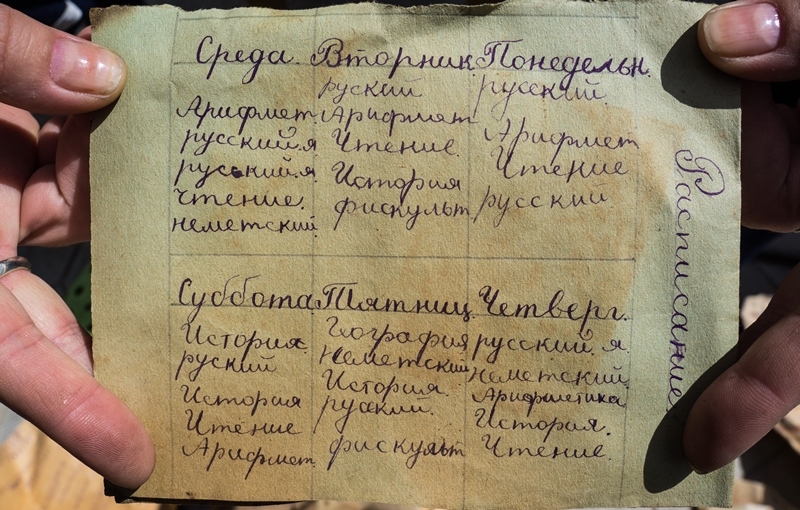 Среда.
Арифмет.
русский.я
руський.я.
чтение.
неметский.
Вторник.
руский
Арифмет
Чтение.
История
фискульт
Понедельн.
русский.
Арифмет
Чтение
русский
Расписание.
Суббота
История.
руский
История
Чтение
Арифмет.
Пятниц.
География
неметский
История.
руский.
фискульт
Четверг.
русский. я.
неметский.
Арифметика
История.
Чтение.